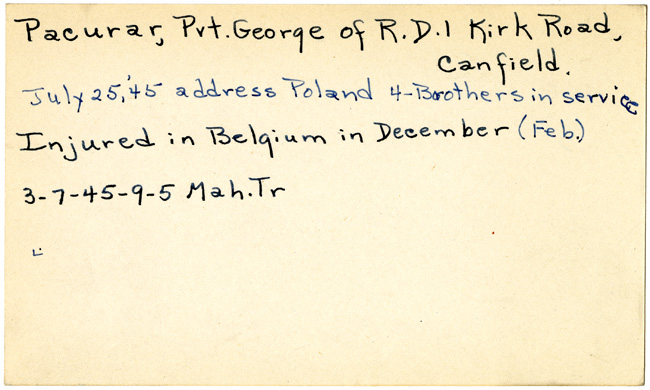 Pacurar, Pvt. George of R.D.1 Kirk Road,
Canfield.
July 25, '45 address Poland 4-Brothers in service
Injured in Belgium in December (Feb.)
3-7-45-9-5 Mah.Tr